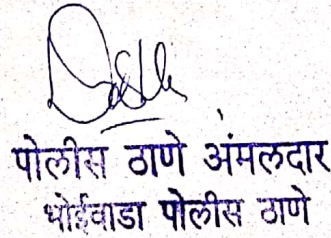 पोलीस ठाणे अंमलदार
भोईवाडा पोलीस ठाणे